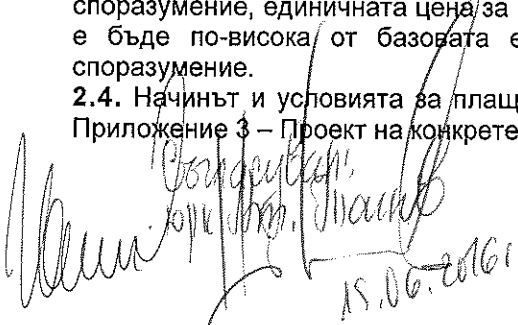 споразумение, единичната цена за
е бъде по-висока от базовата е
споразумение.
2.4. Начинът и условията за плащ
Приложение 3 – Проект на конкрете
Съгласувал:
15.06.2016г